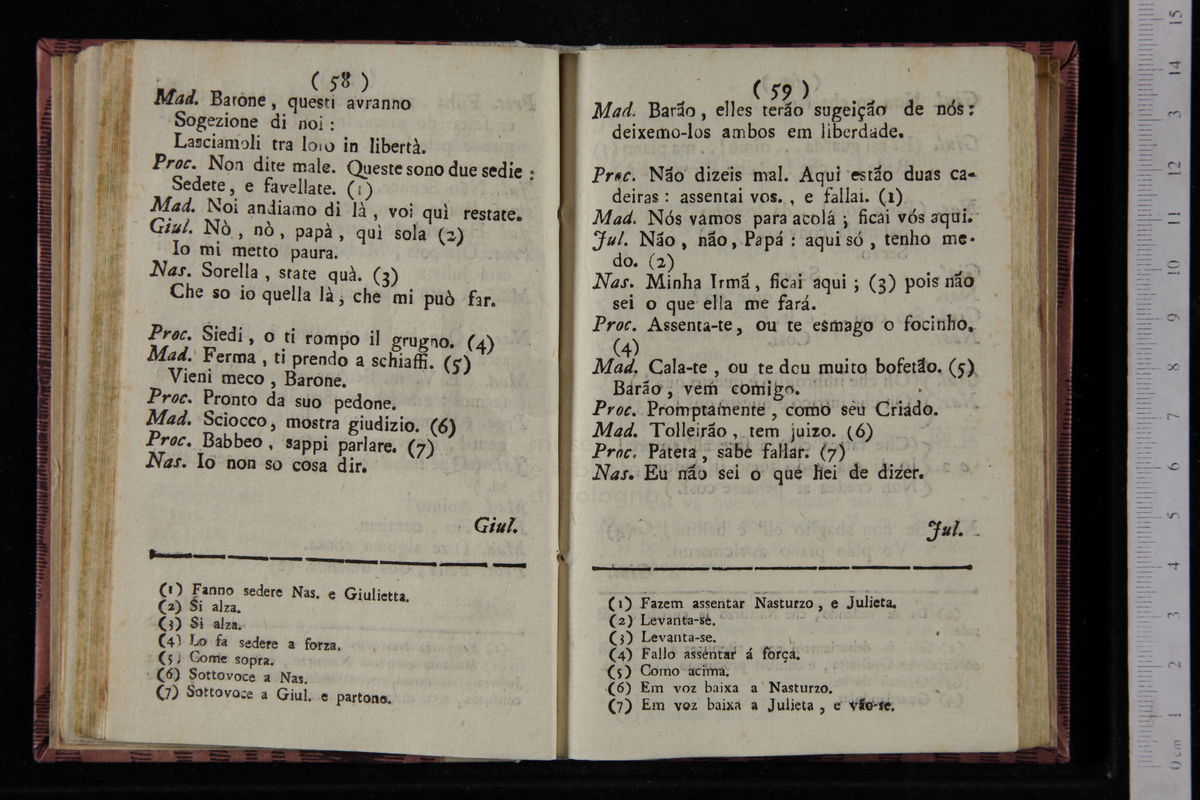 ( 58 )
Mad. Barone, questi avranno
Sogezione di noi :
Lasciamoli tra loro in libertà.
Proc. Non dite male. Queste sono due sedie :
Sedete, e favellate. (1)
Mad. Noi andiamo di là, voi quì restate.
Giul. Nò, nò, papà, quì sola (2)
Io mi metto paura.
Nas. Sorella, state quà. (3)
Che so io quella là, che mi può far.
Proc. Siedi, o ti rompo il grugno. (4)
Mad. Ferma, ti prendo a schiaffi. (5)
Vieni meco, Barone.
Proc. Pronto da suo pedone.
Mad. Sciocco, mostra giudizio. (6)
Proc. Babbeo, sappi parlare. (7)
Nas. Io non so cosa dir.
Giul.
(1) Fanno sedere Nas. e Giulietta.
(2) Si alza.
(3) Si alza.
(4) Lo fa sedere a forza.
(5) Come sopra.
(6) Sottovoce a Nas.
(7) Sottovoce a Giul. e partono.
( 59 )
Mad. Barão, elles terão sugeição de nós :
deixemo-los ambos em liberdade.
Proc. Não dizeis mal. Aqui estão duas ca-
deiras : assentai vos. , e fallai. (1)
Mad. Nós vamos para acolá ; ficai vós aqui.
Jul. Não, não, Papá : aqui só, tenho me-
do. (2)
Nas. Minha Irmã, ficai aqui ; (3) pois não
sei o que ella me fará.
Proc. Assenta-te, ou te esmago o focinho.
(4)
Mad. Cala-te, ou te dou muito bofetão. (5)
Barão, vem comigo.
Proc. Promptamente, como seu Criado.
Mad. Tolleirão, tem juizo. (6)
Proc. Pateta, sabe fallar. (7)
Nas. Eu não sei o que hei de dizer.
Jul.
(1) Fazem assentar Nasturzo, e Julieta.
(2) Levanta-se.
(3) Levanta-se.
(4) Fallo assentar á força.
(5) Como acima.
(6) Em voz baixa a Nasturzo.
(7) Em voz baixa a Julieta, e vão-se.
0 cm 1 2 3 4 5 6 7 8 9 10 11 12 13 14 15